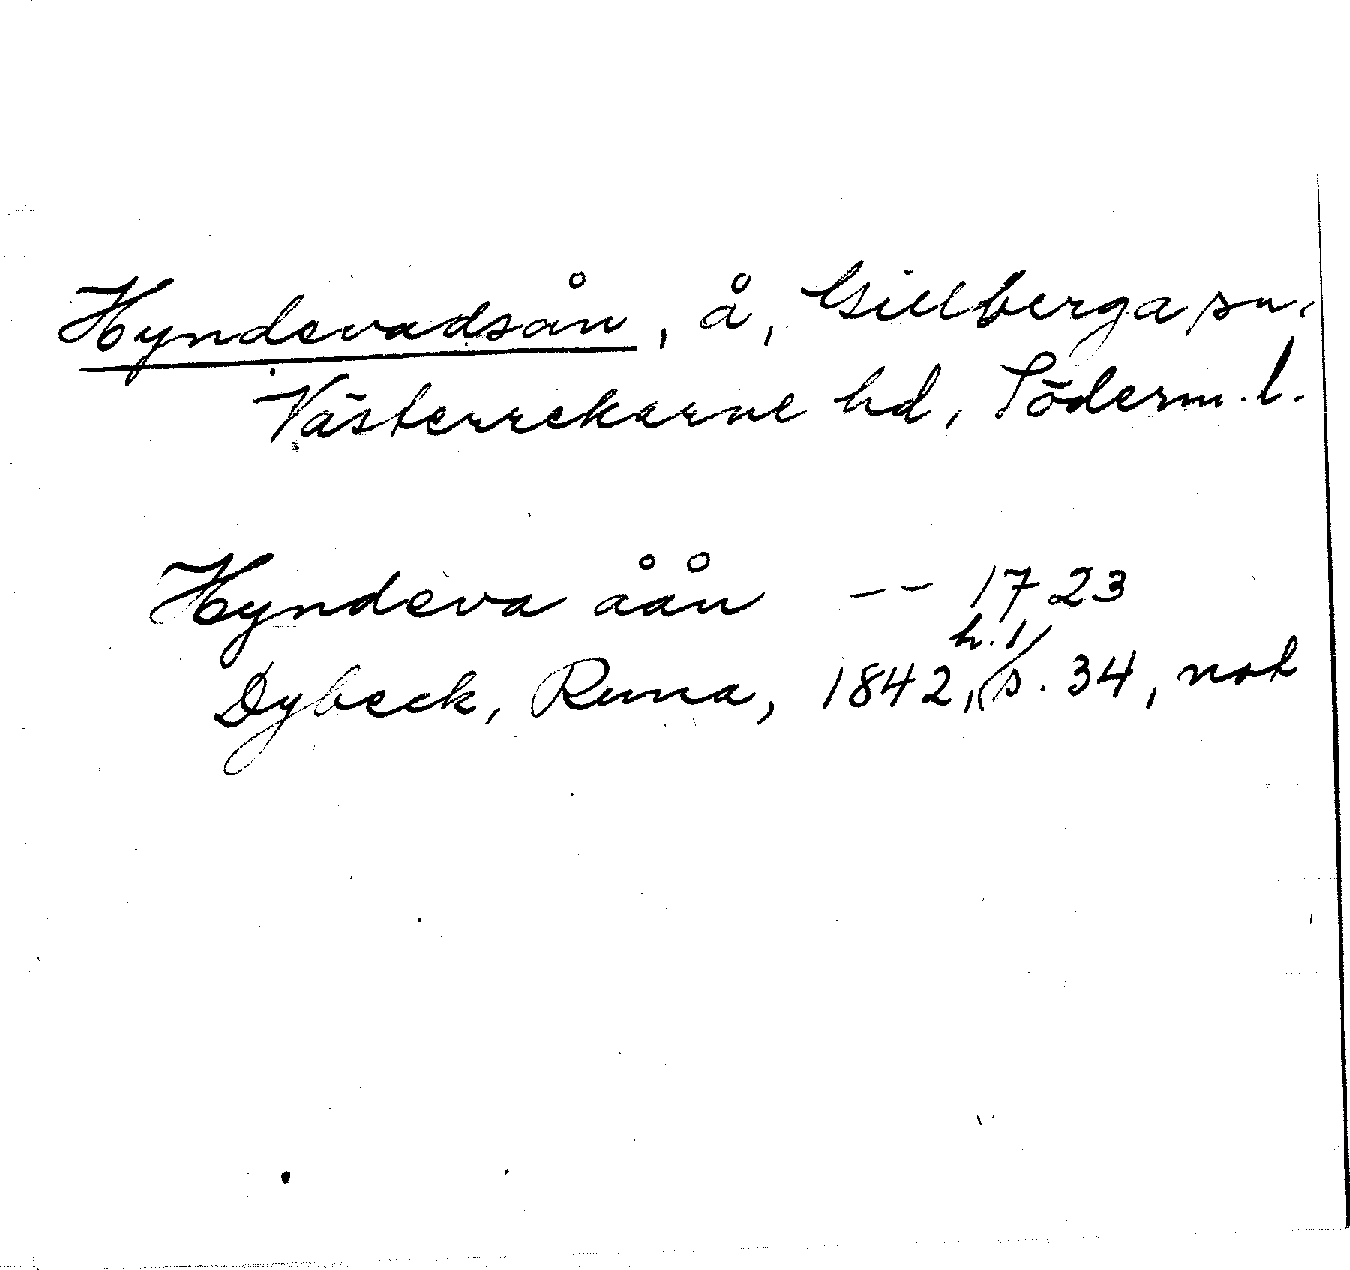 Hyndevadsån, å, Gillberga sn.
Västerrekarne hd, Söderm. l.
Hyndeva åån -- 1723
Dybeck, Runa, 1842, h. 1, s. 34, not